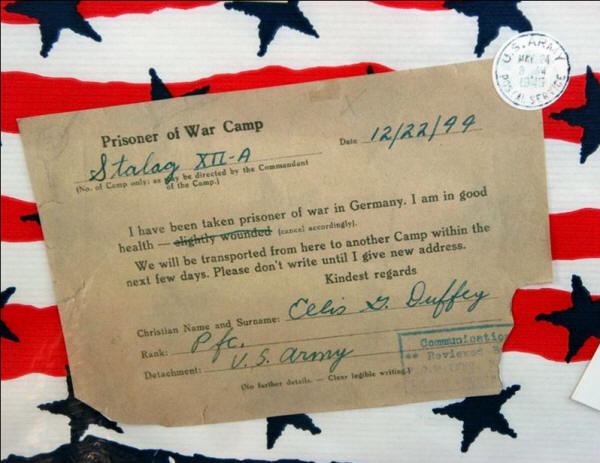 U.S. ARMY
MAY 24
1945
POSTAL SERVICE
Prisoner of War Camp
Stalag XII-A
Date 12/22/44
(No. of Camp only: as may be directed by the Commandant
of the Camp.)
I have been taken prisoner of war in Germany. I am in good
health — slightly wounded (cancel accordingly).
We will be transported from here to another Camp within the
next few days. Please don't write until I give new address.
Kindest regards
Christian Name and Surname: Celis G. Duffey
Rank: Pfc.
Detachment: U.S. Army
(No further details. — Clear legible writing.)
Communicatio
Reviewed